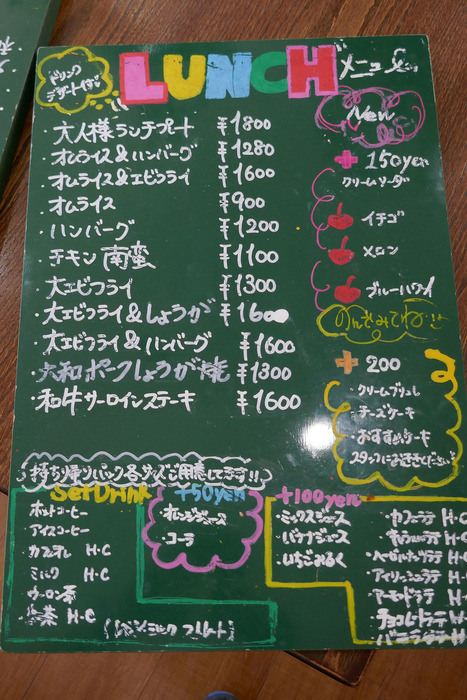 ドリンク
デザート付き
LUNCHメニュー
・大人様ランチプレート ¥1800
・オムライス&ハンバーグ ¥1280
・オムライス&エビフライ ¥1600
・オムライス ¥900
・ハンバーグ ¥1200
・チキン南蛮 ¥1100
・大エビフライ ¥1300
・大エビフライ&しょうが ¥1600
・大エビフライ&ハンバーグ ¥1600
・大和ポークしょうが焼 ¥1300
・和牛サーロインステーキ ¥1600
New
+150yen
クリームソーダ
イチゴ
メロン
ブルーハワイ
のんでみてね!!
+200
・クリームブリュレ
・チーズケーキ
・おすすめケーキ
スタッフにお聞きください
持ち帰りパック各サイズご用意してます!!
Set Drink
ホットコーヒー
アイスコーヒー
カフェオレ H・C
ミルク H・C
・ウーロン茶
・紅茶 H・C
+50yen
・オレンジジュース
・コーラ
+100yen
・ミックスジュース
・バナナジュース
・いちごみるく
・カフェラテ H・C
H・C
・ヘーゼルナッツラテ H・C
・アイリッシュラテ H・C
・アーモンドラテ H・C
・チョコレートラテ H・C
・バニララテ H・C